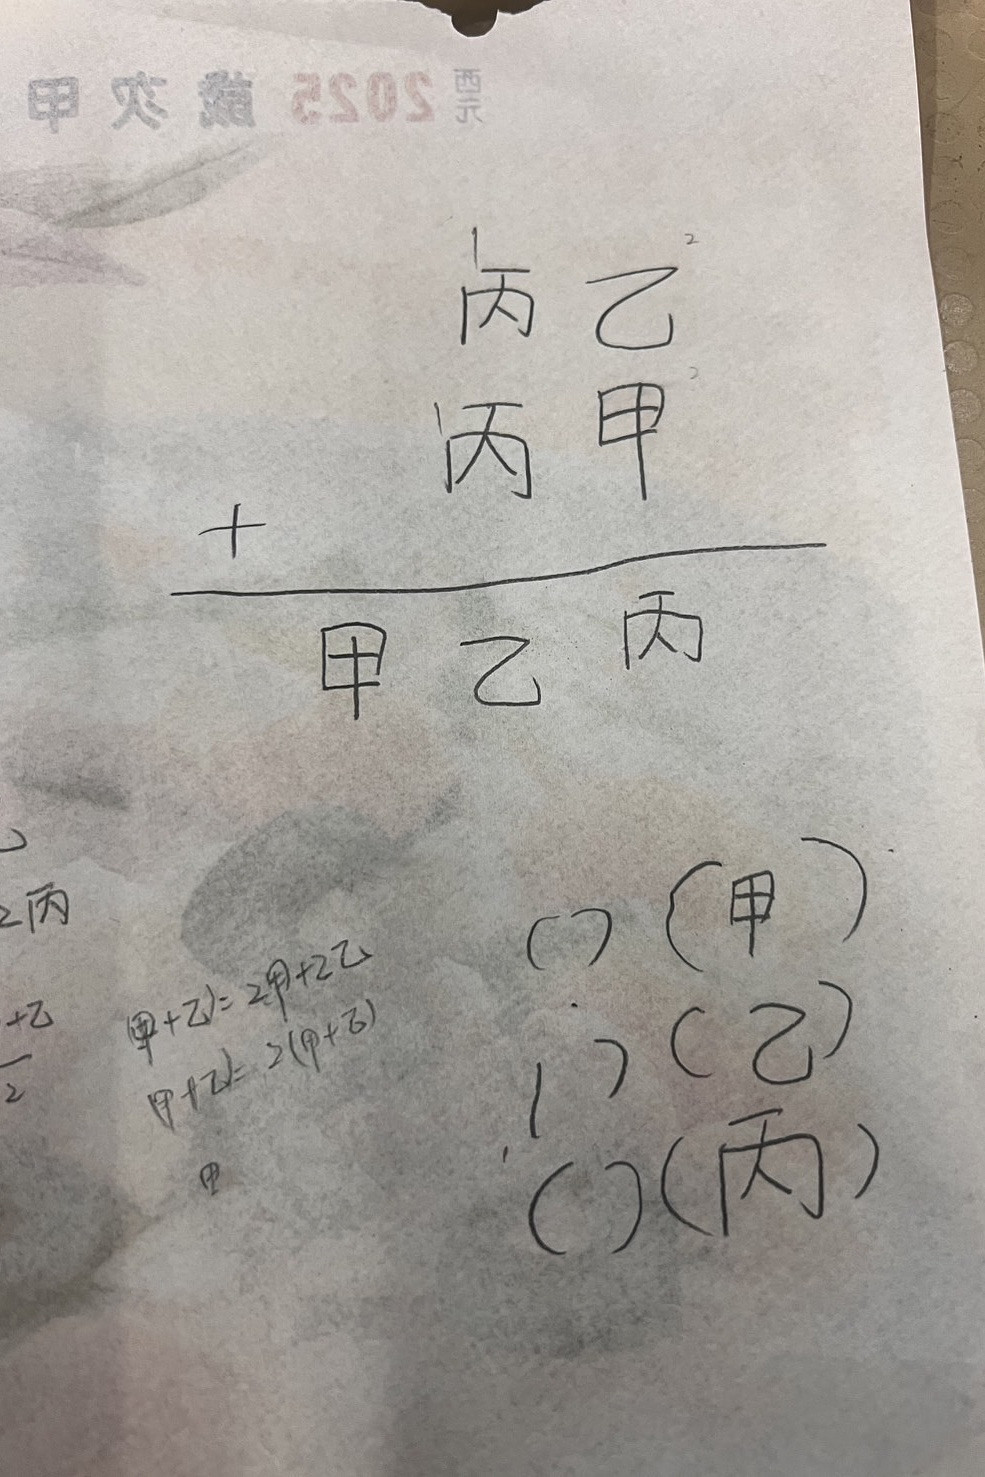 西元 2025 歲次甲
1 2
丙 乙
1 2
丙 甲
+
甲 乙 丙
( ) (甲)
( ) (乙)
( ) (丙)
2丙
+乙
2
(甲+乙)=2甲+2乙
甲+乙)=2(甲+乙)
甲